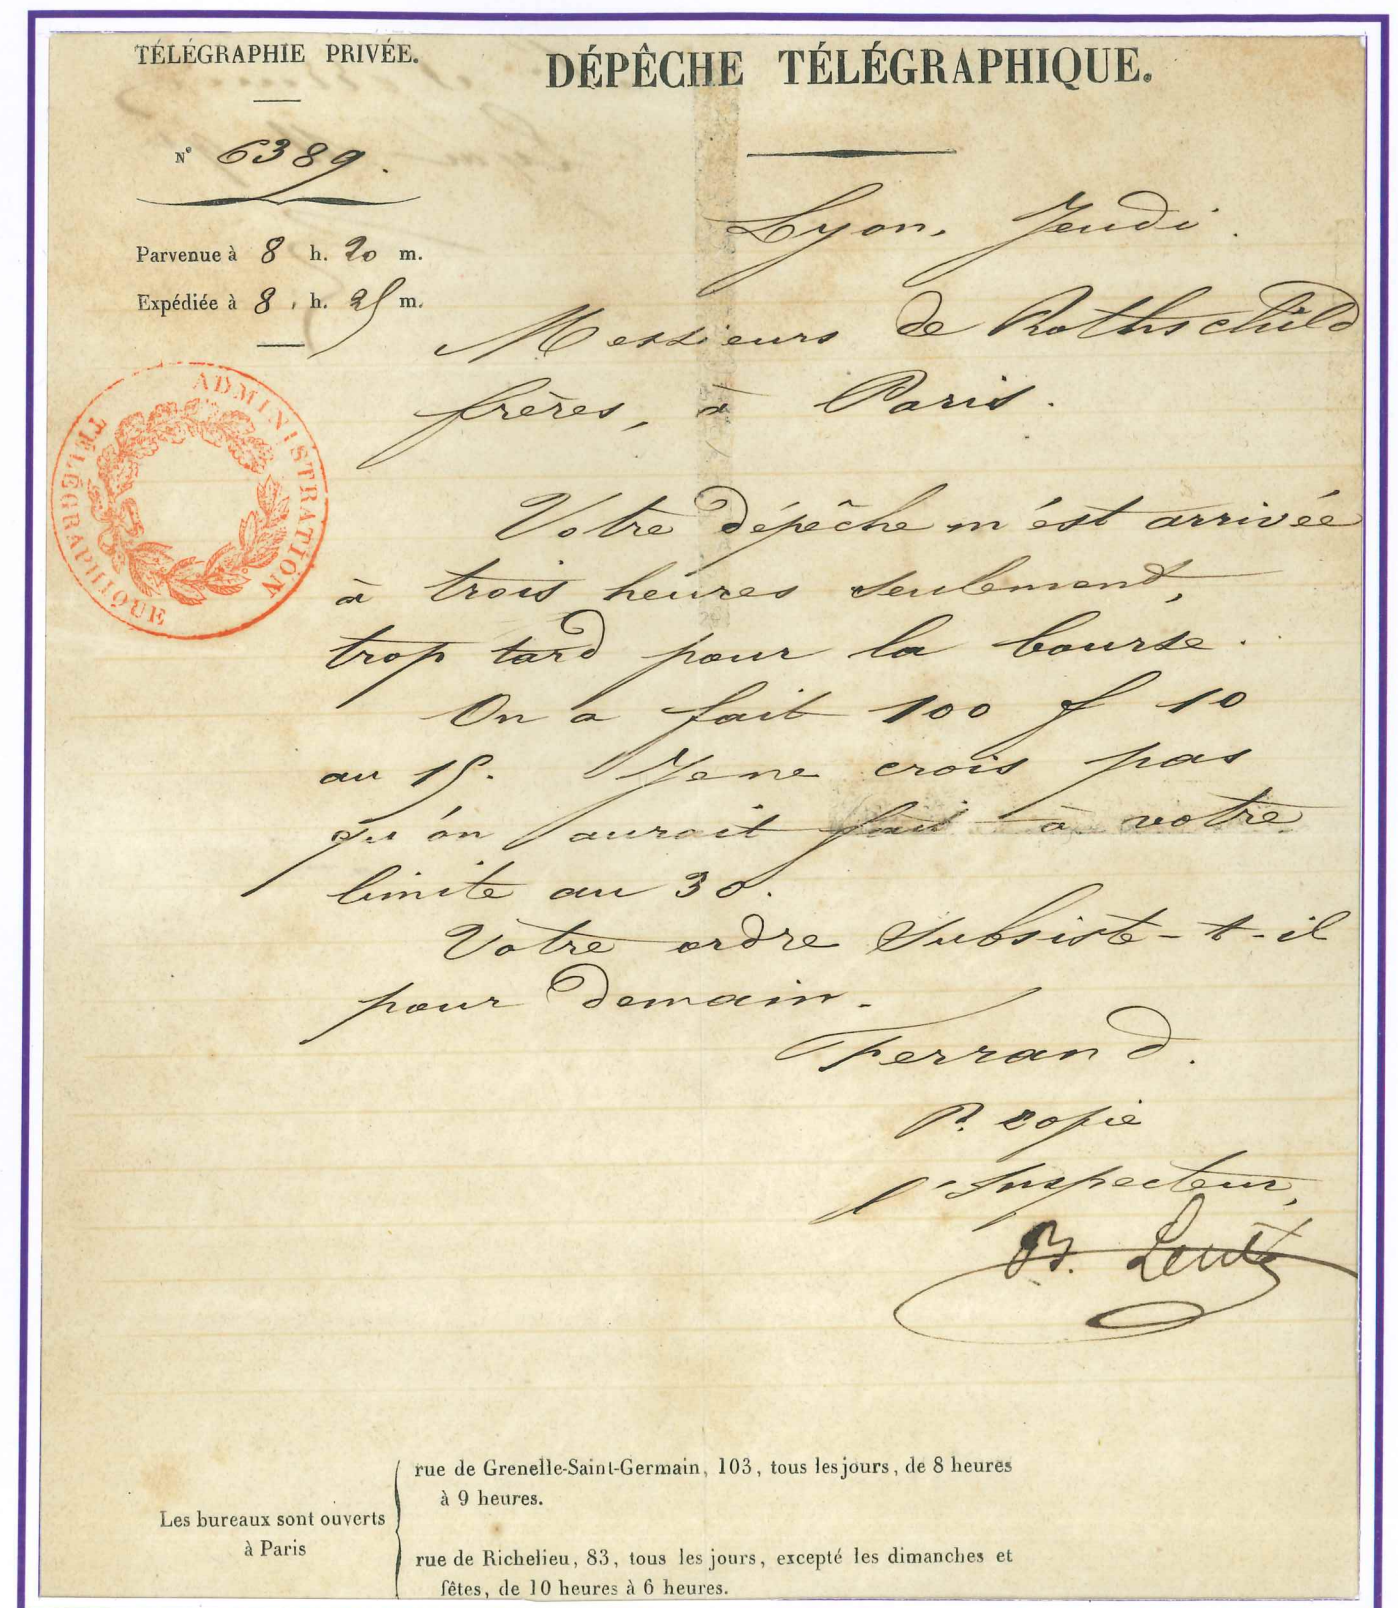 TÉLÉGRAPHIE PRIVÉE.
DÉPÊCHE TÉLÉGRAPHIQUE.
N° 6389.
Parvenue à 8 h. 20 m.
Expédiée à 8 h. 25 m.
ADMINISTRATION
TÉLÉGRAPHIQUE
Lyon, Jeudi.
Messieurs de Rothschild
frères, à Paris.
Votre dépêche m'est arrivée
à trois heures seulement,
trop tard pour la bourse.
On a fait 100 f 10
au 15. Je ne crois pas
qu'on aurait fait à votre
limite au 30.
Votre ordre subsiste-t-il
pour demain.
Ferrand.
Pr. copie
l'Inspecteur,
Les bureaux sont ouverts
à Paris
rue de Grenelle-Saint-Germain, 103, tous les jours, de 8 heures
à 9 heures.
rue de Richelieu, 83, tous les jours, excepté les dimanches et
fêtes, de 10 heures à 6 heures.